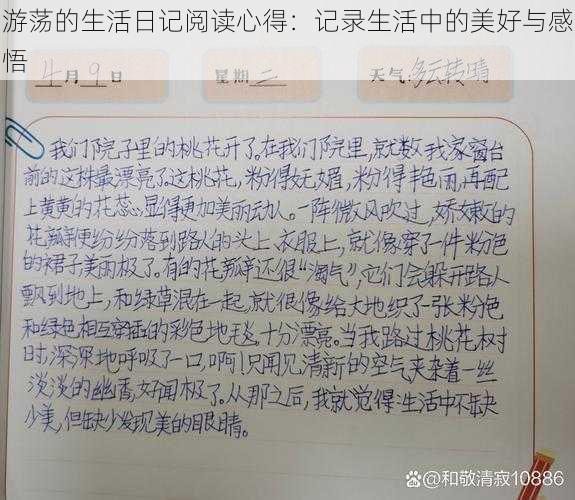 游荡的生活日记阅读心得：记录生活中的美好与感
悟
4月9日 星期二 天气:多云转晴
我们院子里的桃花开了。在我们院里,就数我家窗台
前的这株最漂亮了。这桃花,粉得妩媚,粉得艳丽,再配
上黄黄的花蕊,显得更加美丽动人。一阵微风吹过,娇嫩的
花瓣便纷纷落到路人的头上、衣服上,就像穿了一件粉色
的裙子美丽极了。有的花瓣还很“淘气”,它们会躲开路人
飘到地上,和绿草混在一起,就很像给大地织了一张粉色
和绿色相互穿插的彩色地毯,十分漂亮。当我路过桃花树
时,深深地呼吸了一口,啊!只闻见清新的空气夹杂着一丝
淡淡的幽香,好闻极了。从那之后,我就觉得:生活中不缺
少美,但缺少发现美的眼睛。
@和敬清寂10886